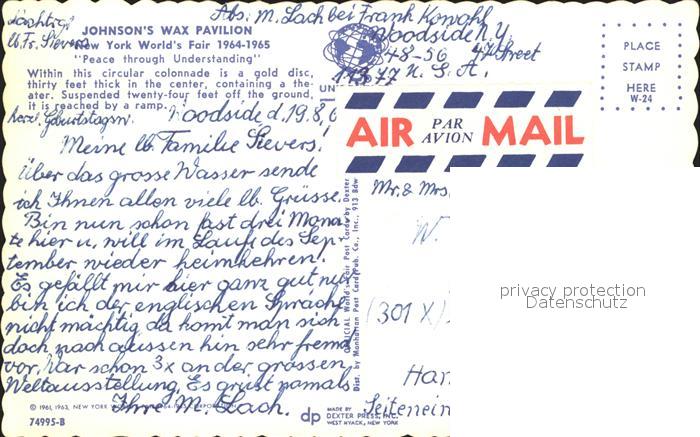 Abs. M. Lach bei Frank Konahl
Woodside N.Y.
48-56 47 Street
11377 U. S. A.
lb. Fr. Sievers
JOHNSON'S WAX PAVILION
New York World's Fair 1964-1965
"Peace through Understanding"
Within this circular colonnade is a gold disc,
thirty feet thick in the center, containing a the-
ater. Suspended twenty-four feet off the ground,
it is reached by a ramp.
herzl. Geburtstagsw.
UN
PLACE
STAMP
HERE
W-24
Woodside d. 19.8.6
AIR PAR AVION MAIL
Meine lb. Familie Sievers!
Über das grosse Wasser sende
ich Ihnen allen viele lb. Grüsse.
Bin nun schon fast drei Mona-
te hier u. will im Lauf des Sep-
tember wieder heimkehren.
Es gefällt mir hier ganz gut nur
bin ich der englischen Sprache
nicht mächtig da komt man sich
doch nach aussen hin sehr fremd
vor. War schon 3x an der grossen
Weltausstellung. Es grüst
Ihre M. Lach.
© 1961, 1963, NEW YORK WORLD'S FAIR 1964-1965 CORPORATION
74995-B
OFFICIAL World's Fair Post Cards by Dexter
Dist. by Manhattan Post Card Pub. Co., Inc., 913 Bdw
dp MADE BY
DEXTER PRESS, INC.
WEST NYACK, NEW YORK
Mr. & Mrs.
W.
(301 X)
Han
privacy protection
Datenschutz